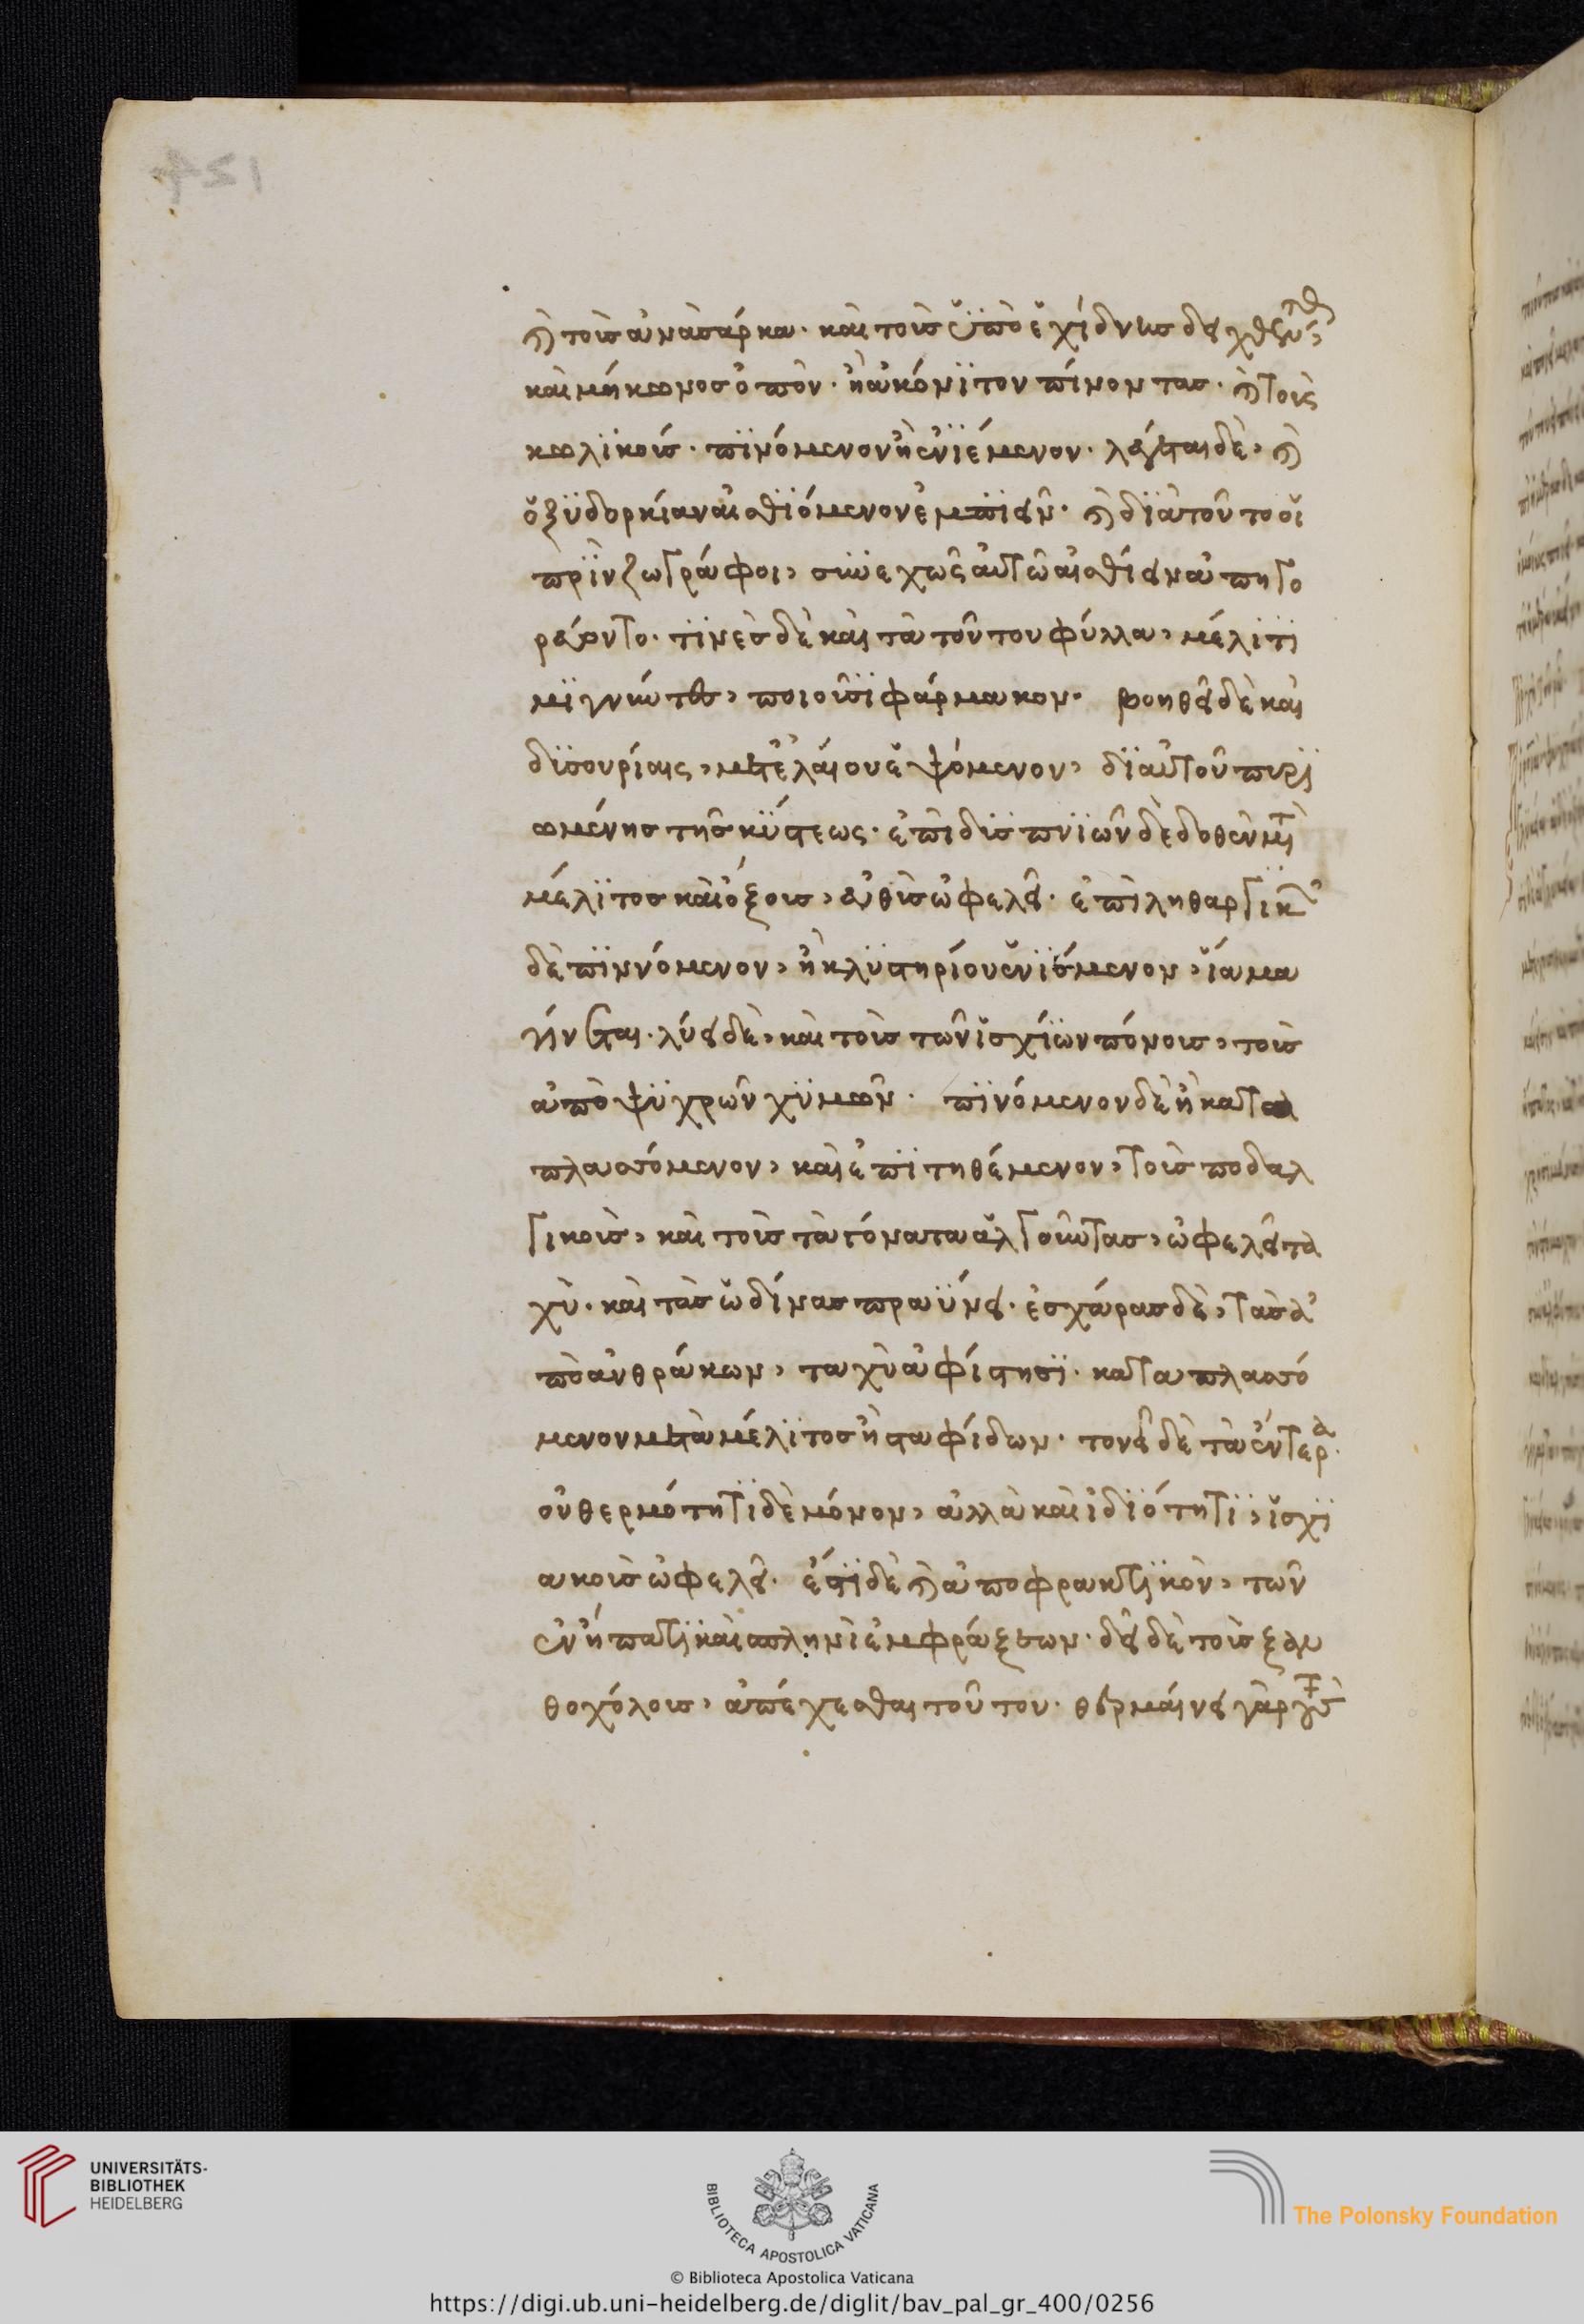 καὶ τοῖς ἀνὰ σάρκα· καὶ τοῖς ὑπὸ ἐχίδνης
καὶ μήκωνος ὀπὸν· ἢ ἀκόνιτον πίνοντας· καὶ τοῖς
κωλικοῖς· πινόμενον ἢ ἐνϊέμενον· λέγεται δὲ, καὶ
ὀξϋδορκίαν αἰσθϊόμενον ἐμπϊεῖν· καὶ διὰ τοῦτο οἱ
πρὶν ζωγράφοι, συνεχῶς αὐτῶ αἰσθίειν ἀπηγο
ρεύοντο· τινὲς δὲ καὶ τὰ τούτου φύλλα, μέλιτι
μιγνύντες, ποιοῦσι φάρμακον· βοηθεῖ δὲ καὶ
δϊσουρίαις, μετ' ἐλαίου ἑψόμενον, δι αὐτοῦ πυρι
ωμένης τῆς κύστεως· ἐπὶ δισπνϊῶν δὲ δοθὲν μετὰ
μέλιτος καὶ ὄξους, εὐθὺς ὠφελεῖ· ἐπὶ ληθαργικ
δὲ πιννόμενον, ἢ κλϋστηρίου ἐνϊέμενον, ἴαμα
γίνεται· λύει δὲ, καὶ τοῖς τῶν ἰσχίων πόνοις, τοῖς
ἀπὸ ψϋχρῶν χϋμῶν· πϊνόμενον δὲ ἢ κατα
πλασσόμενον, καὶ ἐπϊτηθέμενον, τοῖς ποδαλ
γικοῖς, καὶ τοῖς τὰ γόνατα ἀλγοῦντας, ὠφελεῖ τα
χὺ· καὶ τὰς ὠδίνας πραΰνει· ἐσχάρας δὲ, τὰς ἀ
πὸ ἀνθράκων, ταχὺ ἀφίστησϊ· καταπλασσό
μενον μετὰ μέλιτος ἢ σταφίδων· τονεῖ δὲ τὰ ἔντερα·
οὐ θερμότητι δὲ μόνον, ἀλλὰ καὶ ἰδϊότητι, ἰσχϊ
ακοῖς ὠφελεῖ· ἔστι δὲ καὶ ἀποφρακτικὸν, τῶν
ἐν ἥπατι καὶ σπληνὶ ἐμφράξεων· δεῖ δὲ τοῖς ξαν
θοχόλοις, ἀπέχεσθαι τούτου· θερμαίνει γὰρ
UNIVERSITÄTS-
BIBLIOTHEK
HEIDELBERG
BIBLIOTECA APOSTOLICA VATICANA
The Polonsky Foundation
© Biblioteca Apostolica Vaticana
https://digi.ub.uni-heidelberg.de/diglit/bav_pal_gr_400/0256